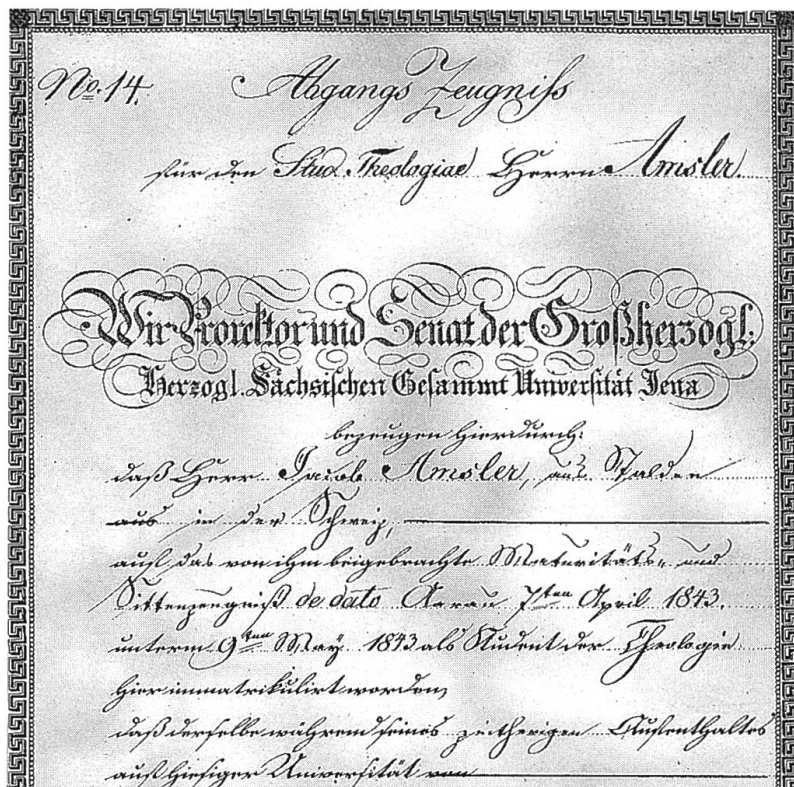 No. 14.
Abgangs Zeugniss
für den Stud. Theologiae Herrn Amsler
Wir Prorektor und Senat der Großherzogl:
Herzogl. Sächsischen Gesammt Universität Jena
bezeugen hierdurch:
daß Herr Jacob Amsler, aus Stalden
aus in der Schweiz,
auf das von ihm beigebrachte Maturitäts- und
Sittenzeugniß de dato Aarau 7ten April 1843.
unterm 9ten May 1843 als Student der Theologie
hier immatrikulirt worden,
daß derselbe während seines zeitherigen Aufenthaltes
auf hiesiger Universität von